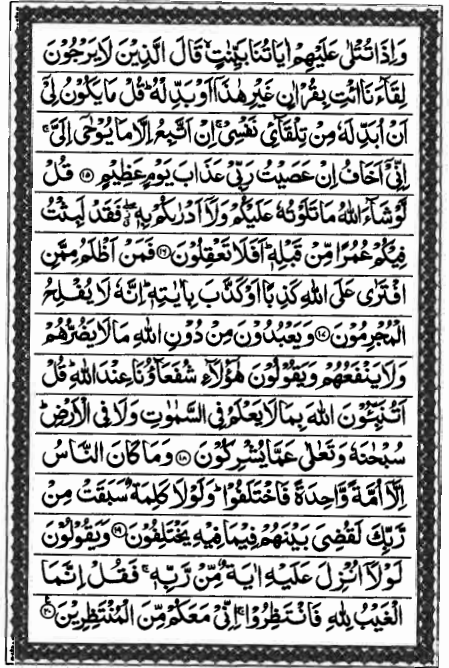 وَاِذَا تُتْلٰى عَلَيْهِمْ اٰيَاتُنَا بَيِّنٰتٍ ۙ قَالَ الَّذِيْنَ لَا يَرْجُوْنَ
لِقَآءَنَا ائْتِ بِقُرْاٰنٍ غَيْرِ هٰذَآ اَوْ بَدِّلْهُ ؕ قُلْ مَا يَكُوْنُ لِيْٓ
اَنْ اُبَدِّلَهٗ مِنْ تِلْقَآئِ نَفْسِيْ ۚ اِنْ اَتَّبِعُ اِلَّا مَا يُوْحٰٓى اِلَيَّ ۚ
اِنِّيْٓ اَخَافُ اِنْ عَصَيْتُ رَبِّيْ عَذَابَ يَوْمٍ عَظِيْمٍ ۝۱۵ قُلْ
لَّوْ شَآءَ اللّٰهُ مَا تَلَوْتُهٗ عَلَيْكُمْ وَلَآ اَدْرٰىكُمْ بِهٖ ۖ فَقَدْ لَبِثْتُ
فِيْكُمْ عُمُرًا مِّنْ قَبْلِهٖ ؕ اَفَلَا تَعْقِلُوْنَ ۝۱۶ فَمَنْ اَظْلَمُ مِمَّنِ
افْتَرٰى عَلَى اللّٰهِ كَذِبًا اَوْ كَذَّبَ بِاٰيٰتِهٖ ؕ اِنَّهٗ لَا يُفْلِحُ
الْمُجْرِمُوْنَ ۝۱۷ وَيَعْبُدُوْنَ مِنْ دُوْنِ اللّٰهِ مَا لَا يَضُرُّهُمْ
وَلَا يَنْفَعُهُمْ وَيَقُوْلُوْنَ هٰٓؤُلَآءِ شُفَعَآؤُنَا عِنْدَ اللّٰهِ ؕ قُلْ
اَتُنَبِّئُوْنَ اللّٰهَ بِمَا لَا يَعْلَمُ فِي السَّمٰوٰتِ وَلَا فِي الْاَرْضِ ؕ
سُبْحٰنَهٗ وَتَعٰلٰى عَمَّا يُشْرِكُوْنَ ۝۱۸ وَمَا كَانَ النَّاسُ
اِلَّآ اُمَّةً وَّاحِدَةً فَاخْتَلَفُوْا ؕ وَلَوْلَا كَلِمَةٌ سَبَقَتْ مِنْ
رَّبِّكَ لَقُضِيَ بَيْنَهُمْ فِيْمَا فِيْهِ يَخْتَلِفُوْنَ ۝۱۹ وَيَقُوْلُوْنَ
لَوْلَآ اُنْزِلَ عَلَيْهِ اٰيَةٌ مِّنْ رَّبِّهٖ ۚ فَقُلْ اِنَّمَا
الْغَيْبُ لِلّٰهِ فَانْتَظِرُوْا ۚ اِنِّيْ مَعَكُمْ مِّنَ الْمُنْتَظِرِيْنَ ۝۲۰